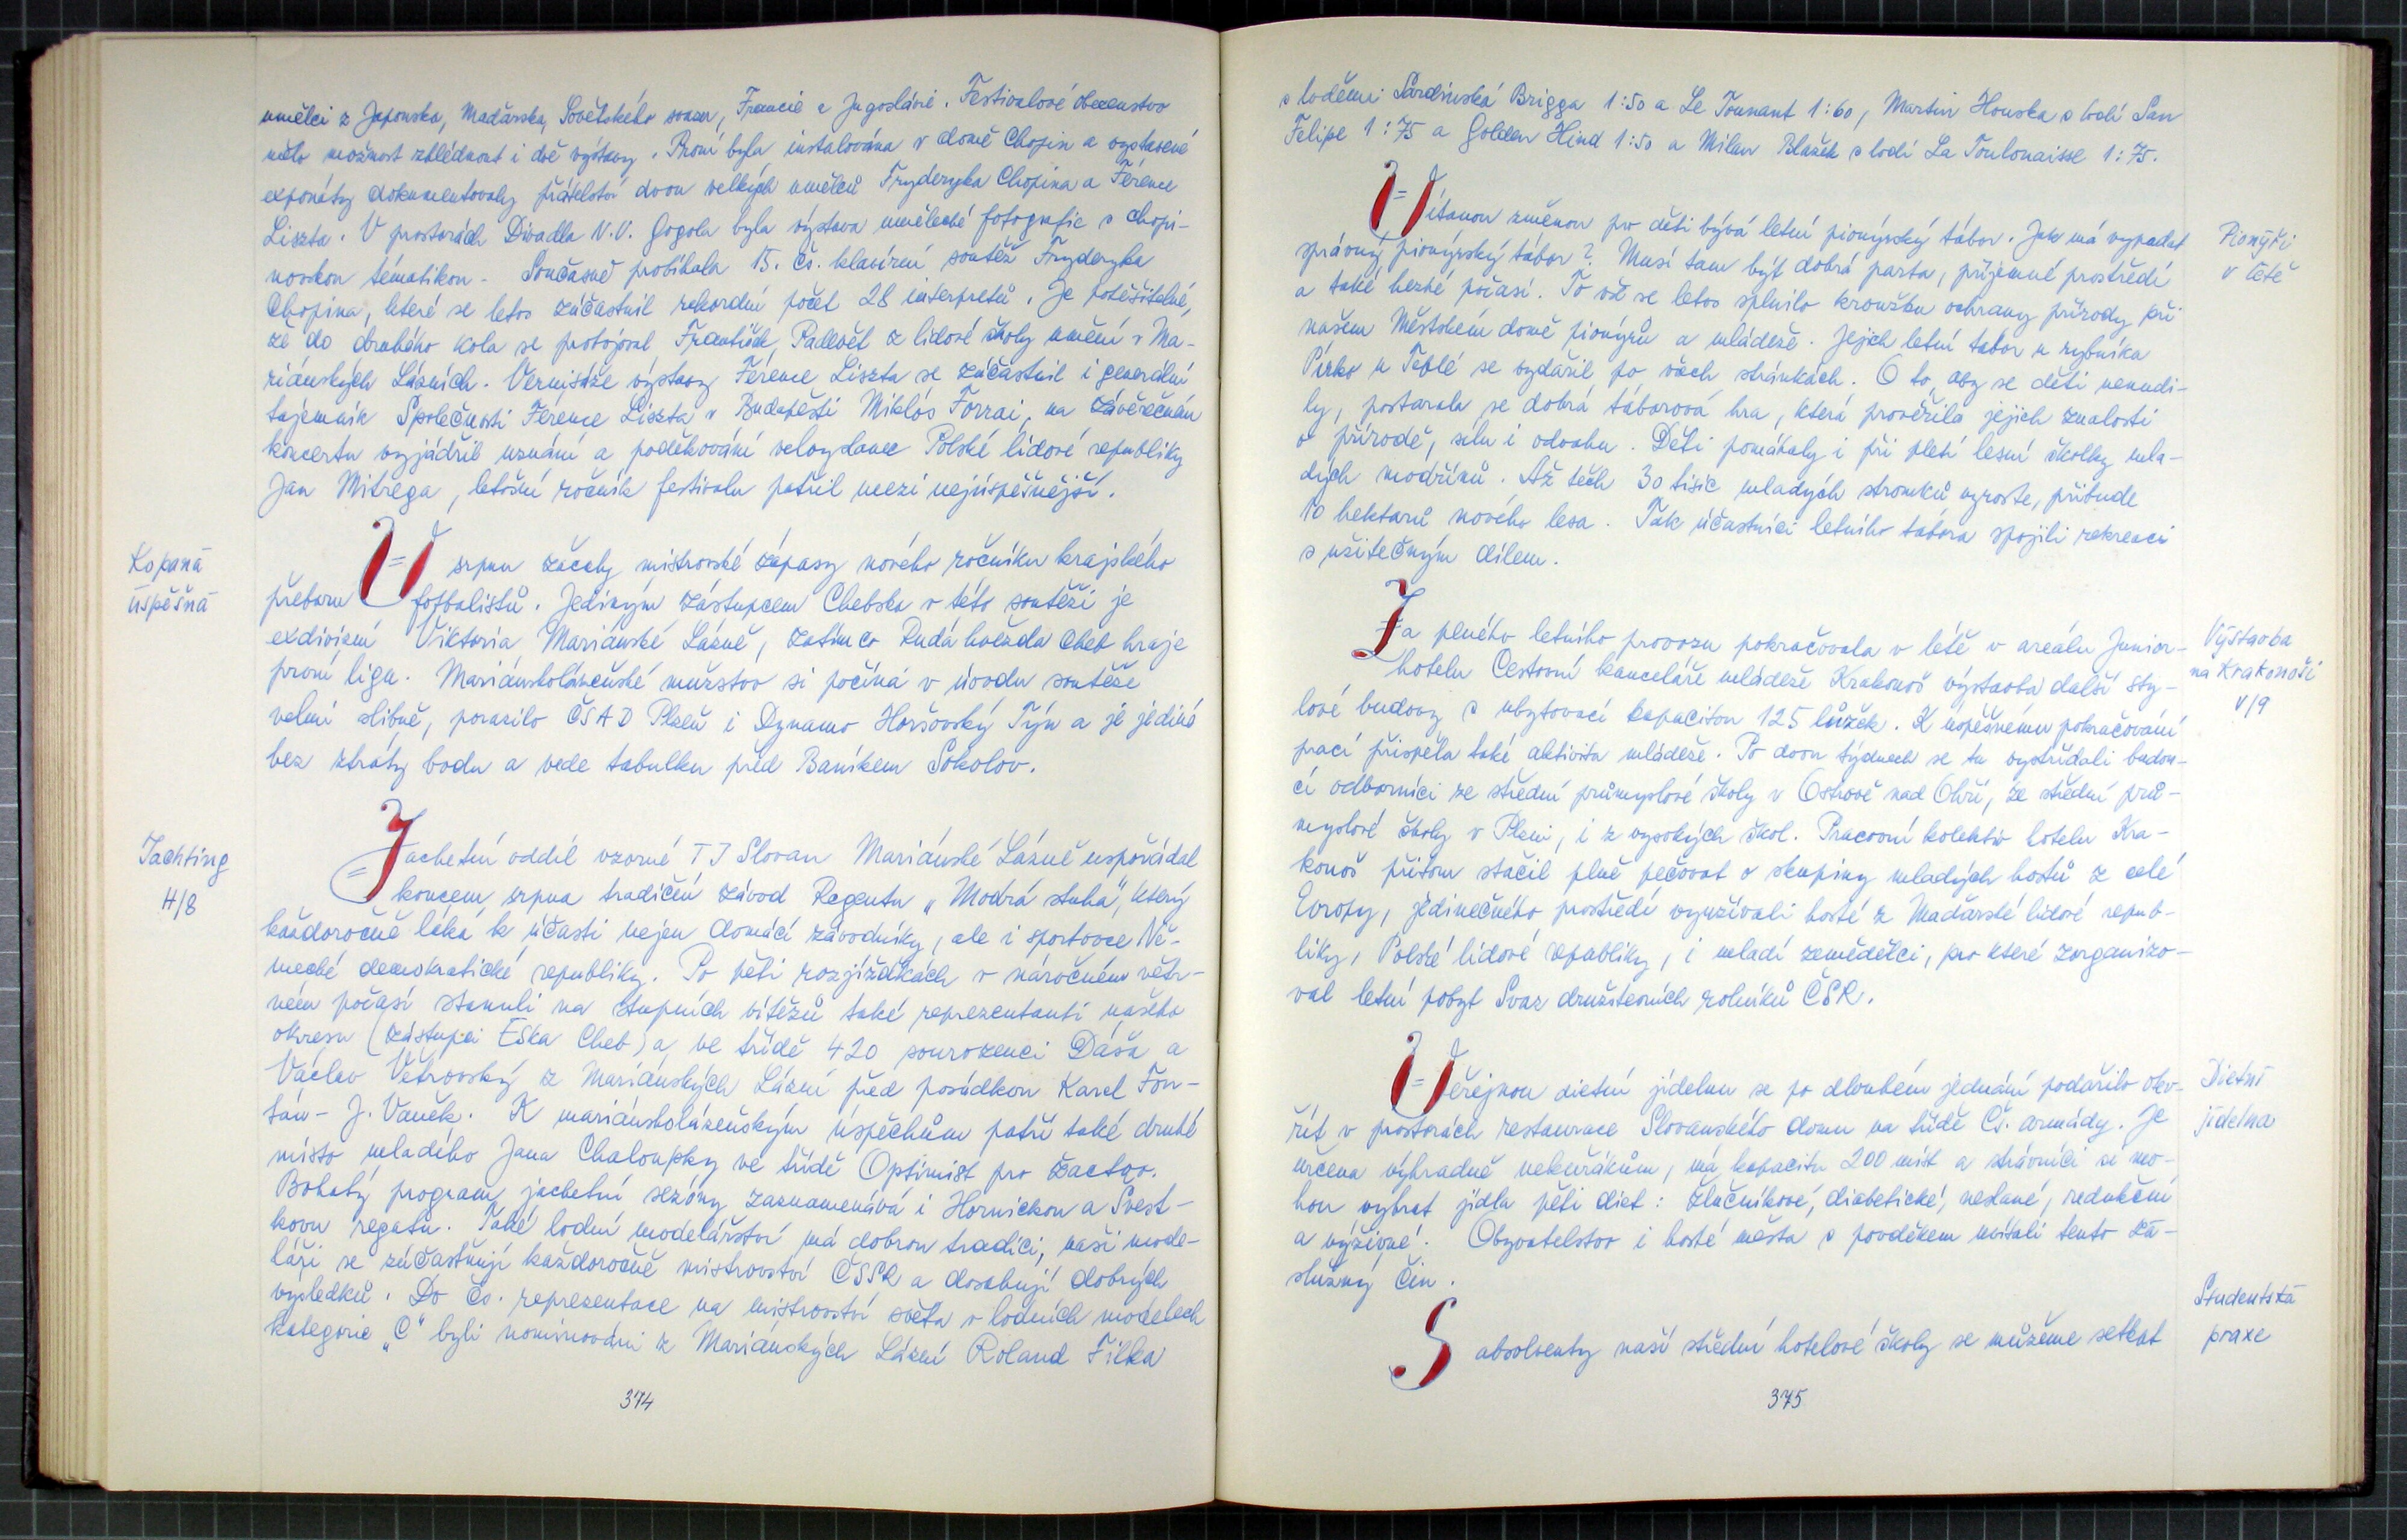 umělci z Japonska, Maďarska, Sovětského svazu, Francie a Jugoslávie. Festivalové obecenstvo
mělo možnost zhlédnout i dvě výstavy. První byla instalována v domě Chopin a vystavené
exponáty dokumentovaly přátelství dvou velkých umělců Fryderyka Chopina a Ference
Liszta. V prostorách Divadla N.V. Gogola byla výstava umělecké fotografie s chopi-
novskou tématikou. Současně probíhala 15. čs. klavírní soutěž Fryderyka
Chopina, které se letos zúčastnil rekordní počet 28 interpretů. Je potěšitelné,
že do druhého kola se probojoval František Padevět z lidové školy umění v Ma-
riánských Lázních. Vernisáže výstavy Ference Liszta se zúčastnil i generální
tajemník Společnosti Ference Liszta v Budapešti Miklós Forrai, na závěrečném
koncertu vyjádřil uznání a poděkování velvyslanec Polské lidové republiky
Jan Mitrega, letošní ročník festivalu patřil mezi nejúspěšnější.
Kopaná
úspěšná
V srpnu začaly mistrovské zápasy nového ročníku krajského
přeboru fotbalistů. Jediným zástupcem Chebska v této soutěži je
exdivizní Viktoria Mariánské Lázně, zatímco Rudá hvězda Cheb hraje
první ligu. Mariánskolázeňské mužstvo si počíná v úvodu soutěže
velmi slibně, porazilo ČSAD Plzeň i Dynamo Horšovský Týn a je jediné
bez ztráty bodu a vede tabulku před Baníkem Sokolov.
Jachting
H/8
Jachetní oddíl vzorné TJ Slovan Mariánské Lázně uspořádal
koncem srpna tradiční závod Regentu "Modrá stuha", který
každoročně láká k účasti nejen domácí závodníky, ale i sportovce Ně-
mecké demokratické republiky. Po pěti rozjížďkách v náročném větr-
ném počasí stanuli na stupních vítězů také reprezentanti našeho
okresu (zástupci Eška Cheb) a ve třídě 420 sourozenci Dáša a
Václav Větrovský z Mariánských Lázní před posádkou Karel Fon-
tán - J. Vaněk. K mariánskolázeňským úspěchům patří také druhé
místo mladého Jana Chaloupky ve třídě Optimist pro žactvo.
Bohatý program jachetní sezóny zaznamenává i Hornickou a Svest-
kovu regatu. Také lodní modelářství má dobrou tradici, naši mode-
láři se zúčastňují každoročně mistrovství ČSSR a dosahují dobrých
výsledků. Do čs. reprezentace na mistrovství světa v lodních modelech
kategorie "C" byli nominováni z Mariánských Lázní Roland Filka
374
s loděmi Sardinská Brigga 1:50 a Le Tonnant 1:60, Martin Houska s lodí San
Felipe 1:75 a Golden Hind 1:50 a Milan Blažek s lodí La Toulonaisse 1:75.
Pionýři
v létě
Vítanou změnou pro děti bývá letní pionýrský tábor. Jak má vypadat
správný pionýrský tábor? Musí tam být dobrá parta, příjemné prostředí
a také hezké počasí. To vše se letos splnilo kroužku ochrany přírody při
našem Městském domě pionýrů a mládeže. Jejich letní tábor u rybníka
Pirko u Teplé se vydařil po všech stránkách. O to, aby se děti nenudi-
ly, postarala se dobrá táborová hra, která prověřila jejich znalosti
o přírodě, sílu i odvahu. Děti pomáhaly i při pletí lesní školky mla-
dých modřínů. Až těch 30 tisíc mladých stromků vyroste, přibude
10 hektarů nového lesa. Tak účastníci letního tábora spojili rekreaci
s užitečným dílem.
Výstavba
na Krakonoši
V/9
Za plného letního provozu pokračovala v létě v areálu Junior-
hotelu Cestovní kanceláře mládeže Krakonoš výstavba další sty-
lové budovy s ubytovací kapacitou 125 lůžek. K úspěšnému pokračování
prací přispěla také aktivita mládeže. Po dvou týdnech se tu vystřídali budou-
cí odborníci ze střední průmyslové školy v Ostrově nad Ohří, ze střední prů-
myslové školy v Plzni, i z vysokých škol. Pracovní kolektiv hotelu Kra-
konoš přitom stačil plně pečovat o skupiny mladých hostů z celé
Evropy, jedinečného prostředí využívali hosté z Maďarské lidové repub-
liky, Polské lidové republiky, i mladí zemědělci, pro které zorganizo-
val letní pobyt Svaz družstevních rolníků ČSR.
Dietní
jídelna
Veřejnou dietní jídelnu se po dlouhém jednání podařilo otev-
řít v prostorách restaurace Slovanského domu na třídě Čs. armády. Je
určena výhradně nekuřákům, má kapacitu 200 míst a strávníci si mo-
hou vybrat jídla pěti diet: žlučníkové, diabetické, neslané, redukční
a výživné. Obyvatelstvo i hosté města s povděkem uvítali tento zá-
služný čin.
Studentská
praxe
S absolventy naší střední hotelové školy se můžeme setkat
375